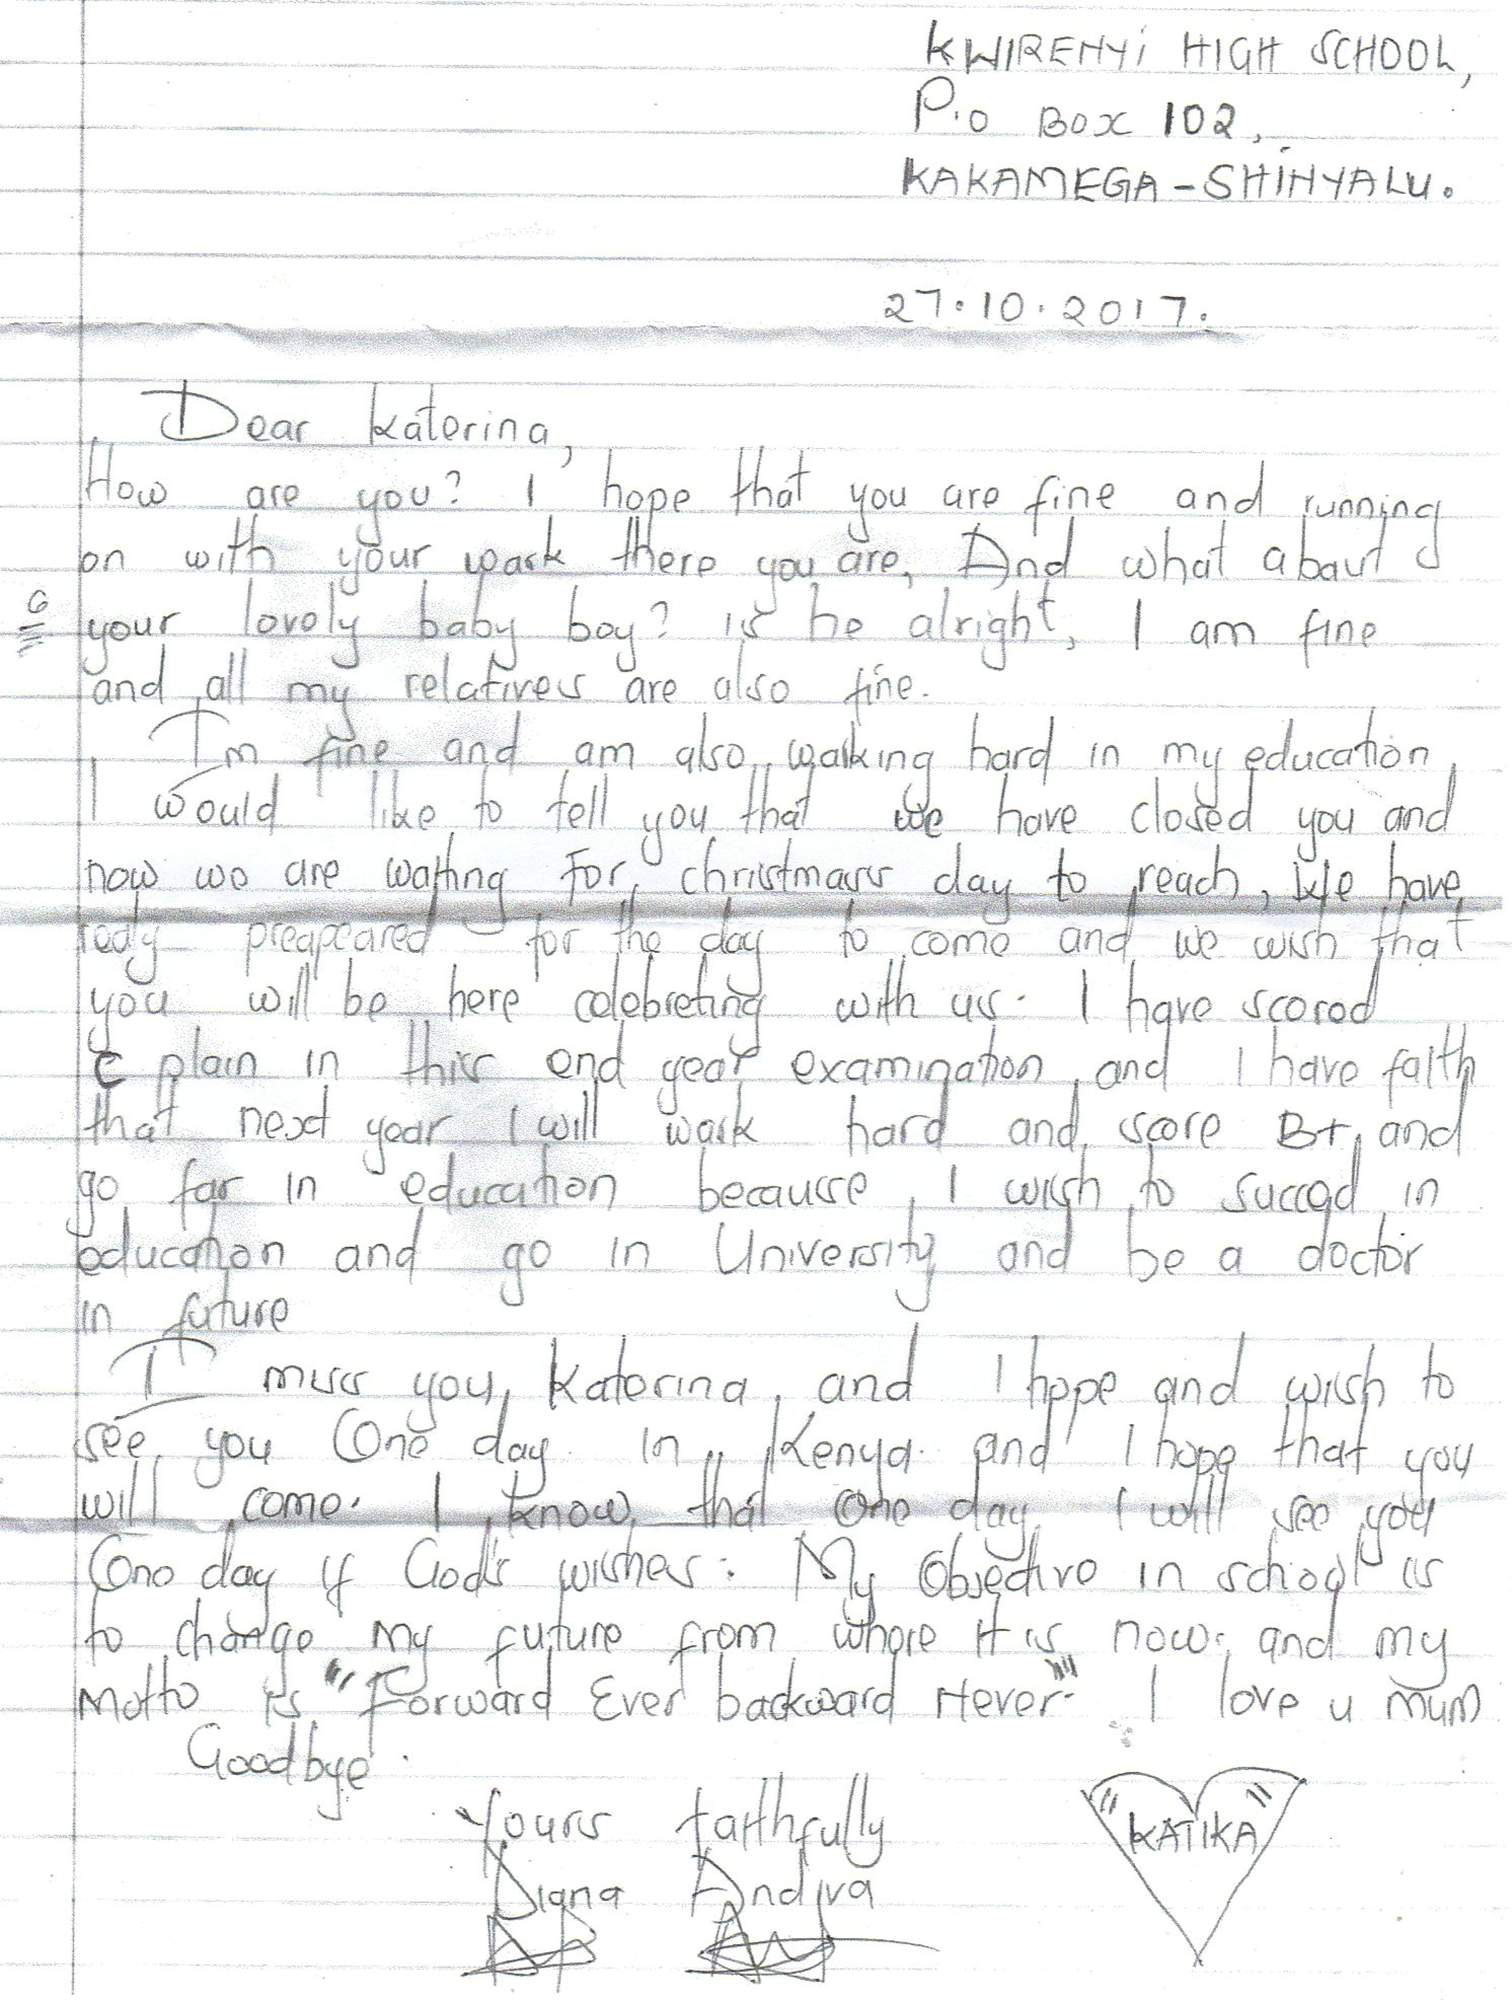 KWIRENYI HIGH SCHOOL,
P.o BOX 102,
KAKAMEGA - SHINYALU.
27.10.2017.
Dear Katerina,
How are you? I hope that you are fine and running
on with your work there you are, And what about
your lovely baby boy? is he alright, I am fine
and all my relatives are also fine.
I'm fine and am also working hard in my education,
I would like to tell you that we have closed you and
now we are waiting For christmass day to reach, We have
redy preapeared for the day to come and we wish that
you will be here celebreting with us. I have scored
C plain in this end year examination, and I have faith
that next year I will work hard and score B+, and
go far in education because, I wish to succed in
education and go in University and be a doctor
in future
I miss you, Katerina, and I hope and wish to
see you One day in Kenya. and I hope that you
will come. I know that One day I will see you
One day if God's wishes. My Objective in school is
to change my future from where it is now. and my
Motto is "Forward Ever backward Never" I love u mum
Goodbye.
Yours faithfully
Diana Andiva
"KATIKA"